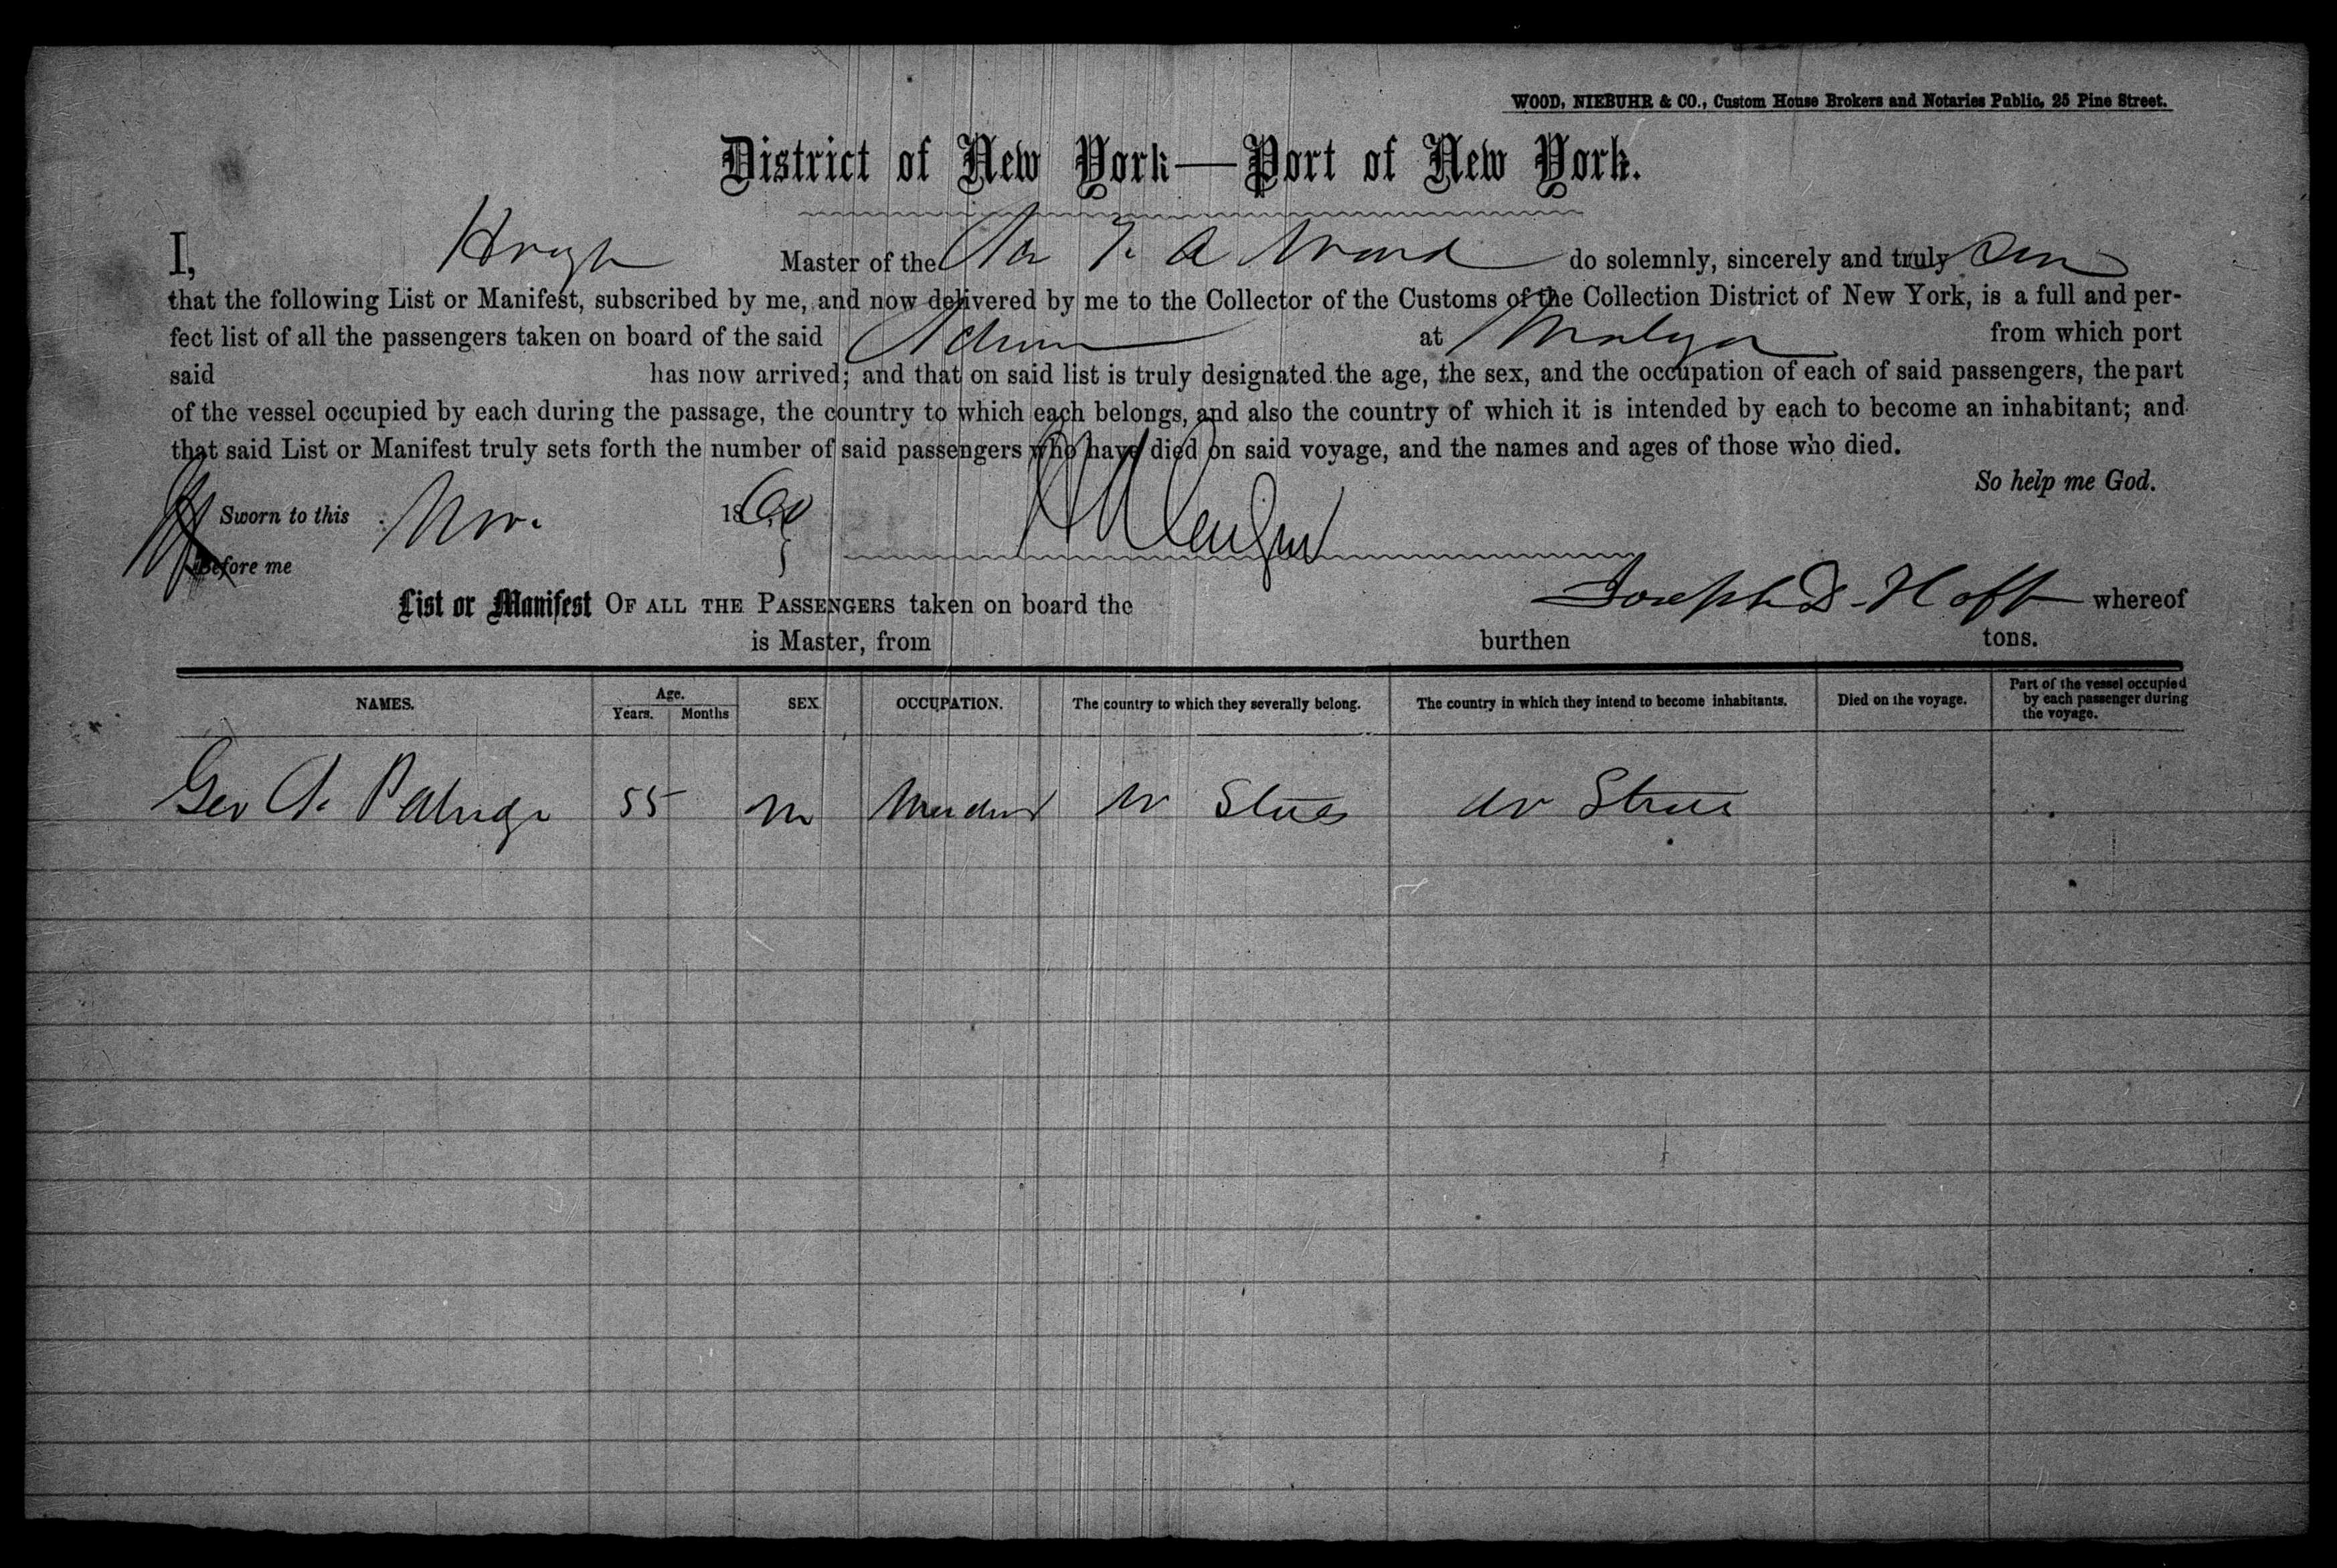 WOOD, NIEBUHR & CO., Custom House Brokers and Notaries Public, 25 Pine Street.
District of New York—Port of New York.
I, Master of the A Ward do solemnly, sincerely and truly
that the following List or Manifest, subscribed by me, and now delivered by me to the Collector of the Customs of the Collection District of New York, is a full and per-
fect list of all the passengers taken on board of the said at Malaga from which port
said has now arrived; and that on said list is truly designated the age, the sex, and the occupation of each of said passengers, the part
of the vessel occupied by each during the passage, the country to which each belongs, and also the country of which it is intended by each to become an inhabitant; and
that said List or Manifest truly sets forth the number of said passengers who have died on said voyage, and the names and ages of those who died.
So help me God.
Sworn to this Nov. 1860
Before me
List or Manifest OF ALL THE PASSENGERS taken on board the Joseph D. Hoft whereof
is Master, from burthen tons.
NAMES. Age. Years. Months SEX. OCCUPATION. The country to which they severally belong. The country in which they intend to become inhabitants. Died on the voyage. Part of the vessel occupied by each passenger during the voyage.
Geo A. 55 m States States